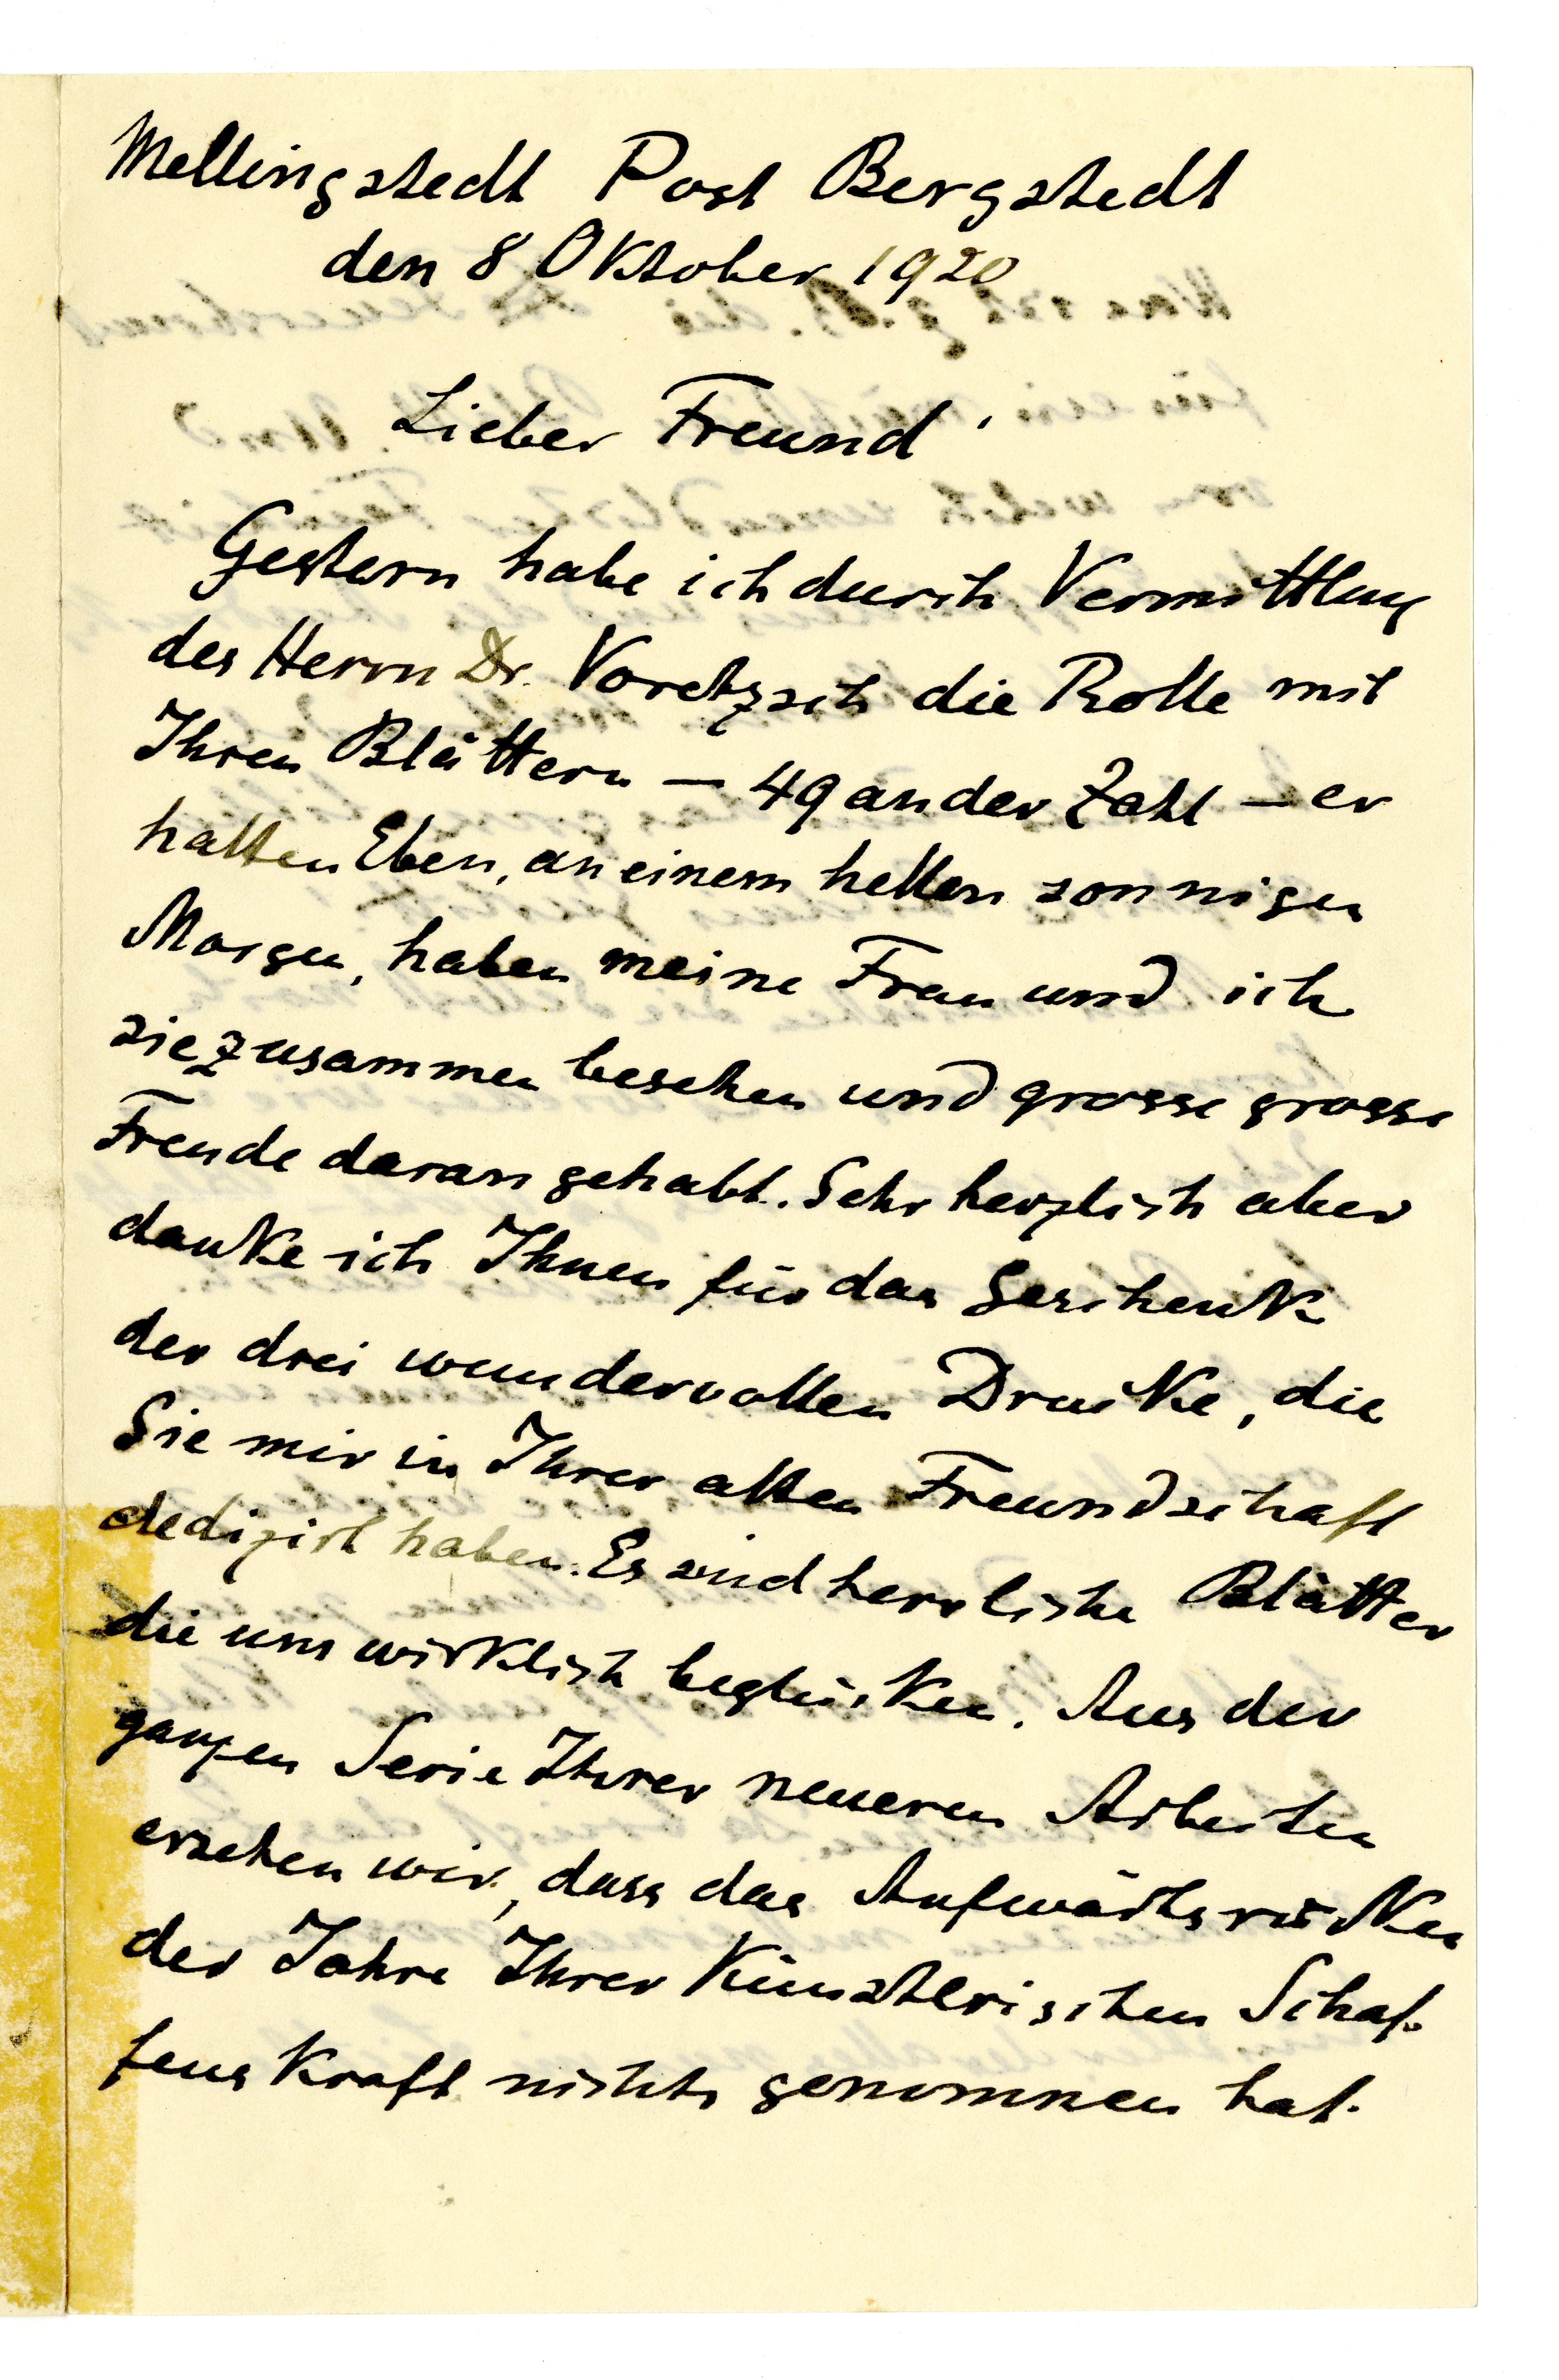 Mellingstedt Post Bergstedt
den 8 Oktober 1920
Lieber Freund,
Gestern habe ich durch Vermittlung
des Herrn Dr. Voretzsch die Rolle mit
Ihren Blättern — 49 an der Zahl — er
halten Eben, an einem hellen sonnigen
Morgen, haben meine Frau und ich
sie zusammen besehen und grosse grosse
Freude daran gehabt. Sehr herzlich aber
danke ich Ihnen für das Geschenk
der drei wundervollen Drucke, die
Sie mir in Ihrer alten Freundschaft
dedizirt haben. Es sind herrliche Blätter
die uns wirklich beglücken. Aus der
ganzen Serie Ihrer neueren Arbeiten
ersehen wir, dass das Aufwärtsrücken
der Jahre Ihrer Künstlerischen Schaf-
fens Kraft nichts genommen hat.